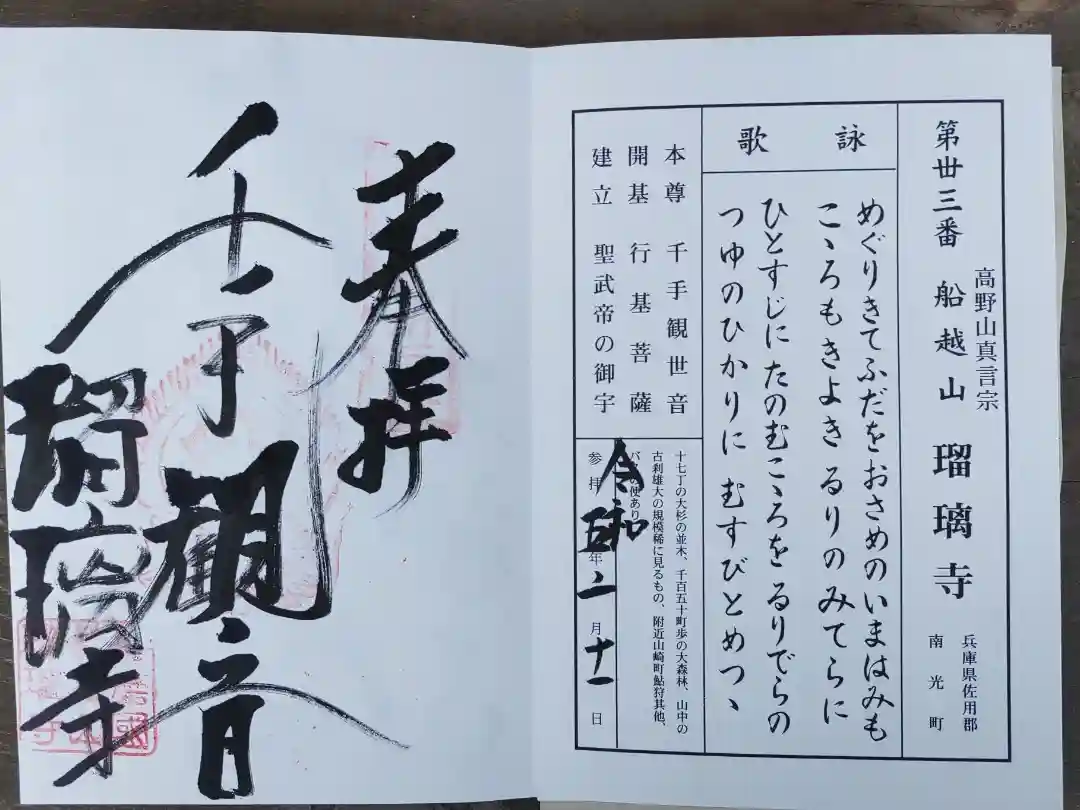 高野山真言宗
第丗三番 船越山 瑠璃寺
兵庫県佐用郡
南光町
詠歌
めぐりきてふだをおさめのいまはみも
こゝろもきよきるりのみてらに
ひとすじにたのむこゝろをるりでらの
つゆのひかりにむすびとめつゝ
本尊 千手観世音
開基 行基菩薩
建立 聖武帝の御宇
十七丁の大杉の並木、千百五十町歩の大森林、山中の
古刹雄大の規模稀に見るもの、附近山崎町鮎狩其他、
の便あり
参拝 令和五年二月十一日
奉拝
千手観音
瑠璃寺